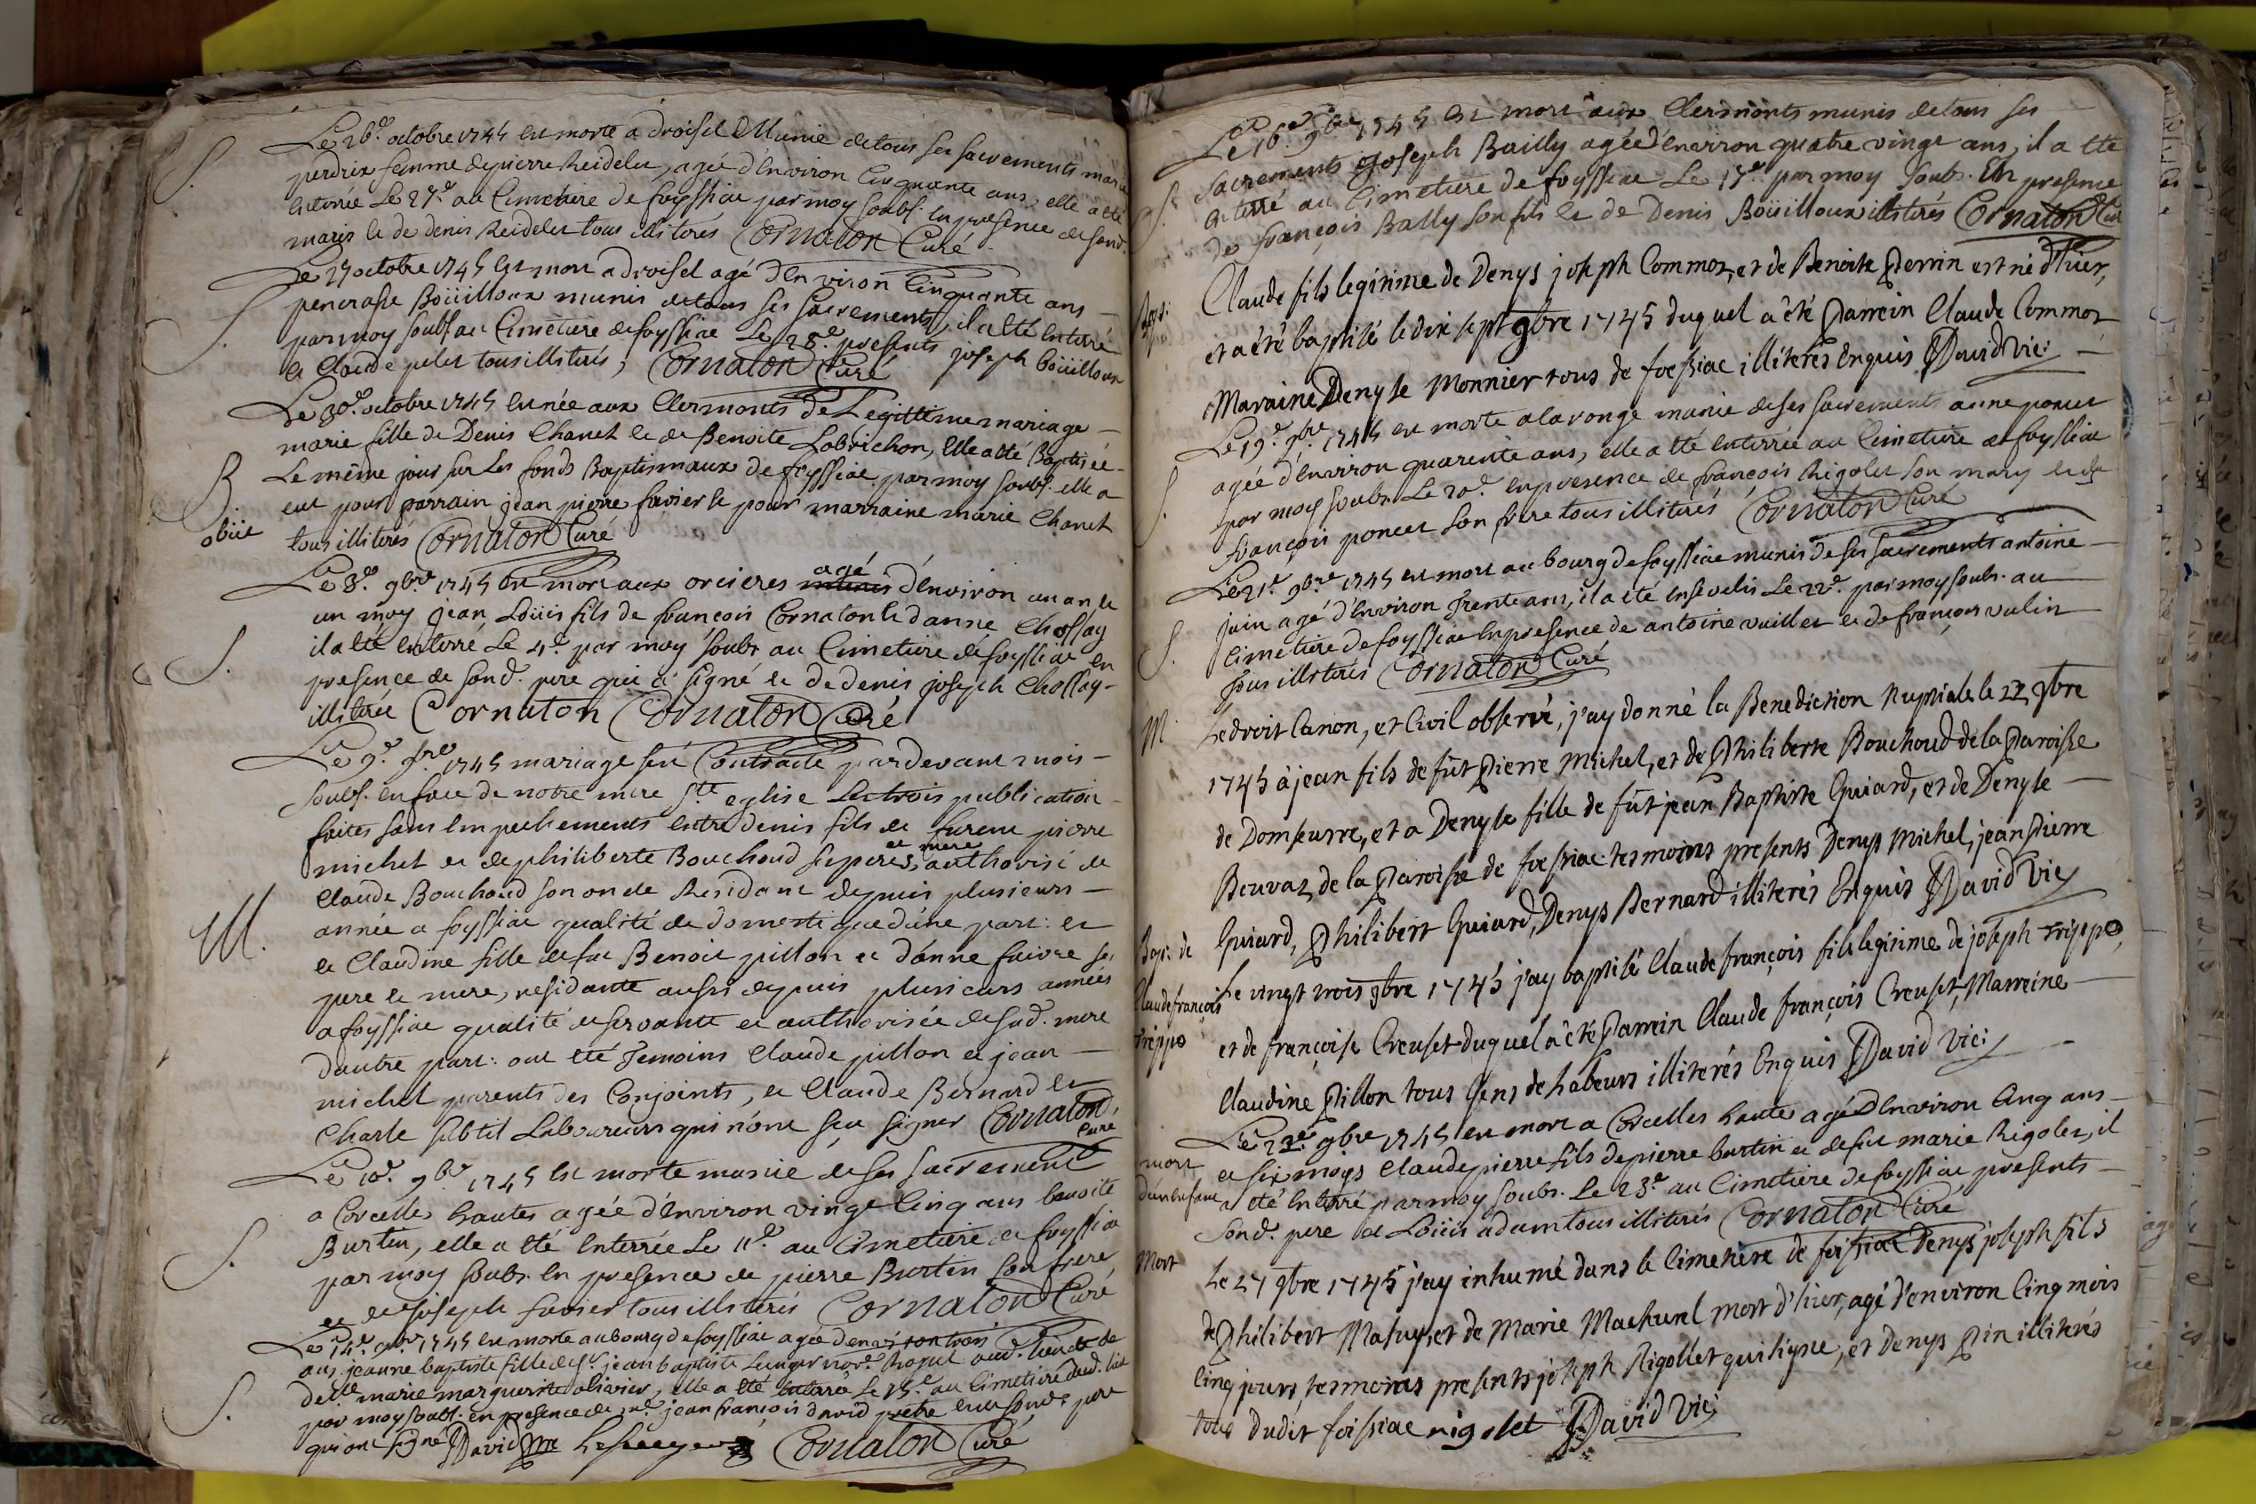 S. Le 26e. octobre 1745 est morte a droisel Munie de tous ses sacrements marie
perdrix femme de pierre Reidelet, agée d'Environ Cinquante ans, elle a été
Enterrée Le 27e. au Cimetiere de foyssiac par moy soubs. En presence de sond.
maris et de denis Reidelet tous illiterés Cornaton Curé
S. Le 27 octobre 1745 est mort a droisel agé d'Environ Cinquante ans
pencrasse Boüilloux munis de tous ses sacrements, il a été Enterré
par moy soubs. au Cimetiere de foyssiac Le 28e. presents joseph boüilloux
et Claude pelet tous illiterés, Cornaton Curé
Le 30e. octobre 1745 est née aux Clermonts de Legittime mariage
marie fille de Denis Chanel et de Benoite Labrichon, Elle a été Baptisée
B. Le même jour sur Les fonds Baptismaux de foyssiac par moy soubs. elle a
eut pour parrain jean pierre favier et pour marraine marie Chanel
obiit tous illiterés Cornaton Curé
Le 3e. 9bre 1745 est mort aux orcieres agé d'Environ un an et
un moy jean Loüis fils de francois Cornaton et d'anne Chossay
S. il a été Enterré Le 4e. par moy soubs. au Cimetiere de foyssiac en
presence de sond. pere qui a signé et de denis joseph Chossay
illiteré Cornaton Cornaton Curé
Le 9e. 9bre 1745 mariage fut Contracté par devant mois
soubs. en face de notre mere Ste. eglise Les trois publication
faites sans Empechements entre denis fils de furent pierre
michel et de philiberte Bouchoud ses peres et mere authorisé de
Claude Bouchoud son oncle Residant depuis plusieurs
M. année a foyssiac qualité de domestique d'une part: et
et Claudine fille de fut Benoit pillon et d'anne faivre ses
pere et mere, residante aussi depuis plusieurs années
a foyssiac qualité de servante et authorisée de sad. mere
d'autre part: ont été Temoins Claude pillon et jean
michel parents des Conjoints, et Claude Bernard et
Charle subtil Laboureurs qui n'ont sçu signer Cornaton Curé
Le 10e. 9br 1745 est morte munie de ses sacrement
a Corcelles hautes agée d'Environ vingt Cinq ans benoite
S. Burtin, elle a été Enterrée Le 11e. au Cimetiere de foyssiac
par moy soubs. en presence de pierre Burtin son frere,
et de joseph favier tous illiterés Cornaton Curé
Le 14e. 9br 1745 est morte au bourg de foyssiac agée d'environ trois
ans, jeanne baptiste fille de sr. jean baptiste nore. Royal aud. lieu et de
S. delle. marie margueritte olivier, elle a été Enterré Le 15e. au Cimetiere dud. lieu
par moy soubs. en presence de me. jean francois david pretre et de sond. pere
qui ont signé David Cornaton Curé
S. Le 16e. 9bre 1745 est mort aux Clermonts munis de tous ses
Sacrements joseph Bailly agée d'environ quatre vingt ans, il a été
Enterré au Cimetiere de foyssiac Le 17e. par moy soubs. En presence
de françois Bally son fils et de Denis Boüilloux illiterés Cornaton Cur
Claude fils legitime de Denys joseph Commoz, et de Benoite Perrin est né d'hier,
Bapt: et a été baptisé le dix sept 9bre 1745 duquel a été Parrein Claude Commoz
Maraine Denyse Monnier tous de foissiac illiterés Enquis David vic:
Le 19e. 9bre. 1745 est morte a la ronge munie de ses sacrements anne poncet
agée d'Environ quarente ans, elle a été Enterrée au Cimetiere de foyssiac
S. par moy soubs. Le 20e. En presence de françois Rigolet son mary et de
françois poncet son frere tous illiterés Cornaton Curé
Le 21e. 9bre. 1745 est mort au bourg de foyssiac munis de ses sacrements antoine
juin agé d'Environ Trente ans, il a été Enseveli Le 22e. par moy soubs. au
S. Cimetiere de foyssiac En presence de antoine vuillet et de françois vulin
Tous illiterés Cornaton Curé
M. Le droit Canon, et Civil observé, j'ay donné la Benediction Nuptiale le 22 9bre
1745 à jean fils de fût Pierre Michel, et de Philiberte Bouchoud de la Paroisse
de Domseurre, et a Denyse fille de fût jean Baptiste Guiard, et de Denyse
Bouvaz, de la Paroisse de foissiac tesmoins presents Denys Michel, jean Pierre
Guiard, Philibert Guiard, Denys Bernard illiterés Enquis David Vic
Bapt: de Claude françois Treppo
Le vingt trois 9bre 1745 j'ay baptisé Claude françois fils legitime de joseph Treppo,
et de françoise Creuset duquel a été Parrein Claude françois Creuset, Marreine
Claudine Pillon tous Gens de Labeurs illiterés Enquis David Vic:
Le 22e. 9bre 1745 est mort a Corcelles haute agé d'Environ Cinq ans
mort d'un enfant
et six moys Claude pierre fils de pierre burtin et de fut marie Rigolet, il
a été Enterré par moy soubs. Le 23e. au Cimetiere de foyssiac presents
sond. pere et Loüis adam tous illiterés Cornaton Curé
Mort Le 27 9bre 1745 j'ay inhumé dans le Cimetiere de foissiac Denys joseph fils
de Philibert Mahuy, et de Marie Machurel mort d'hier, agé d'environ Cinq mois
Cinq jours, tesmoins presents joseph Rigollet qui signe, et denys Pin illiterés
tous dudit foissiac rigolet David Vic: